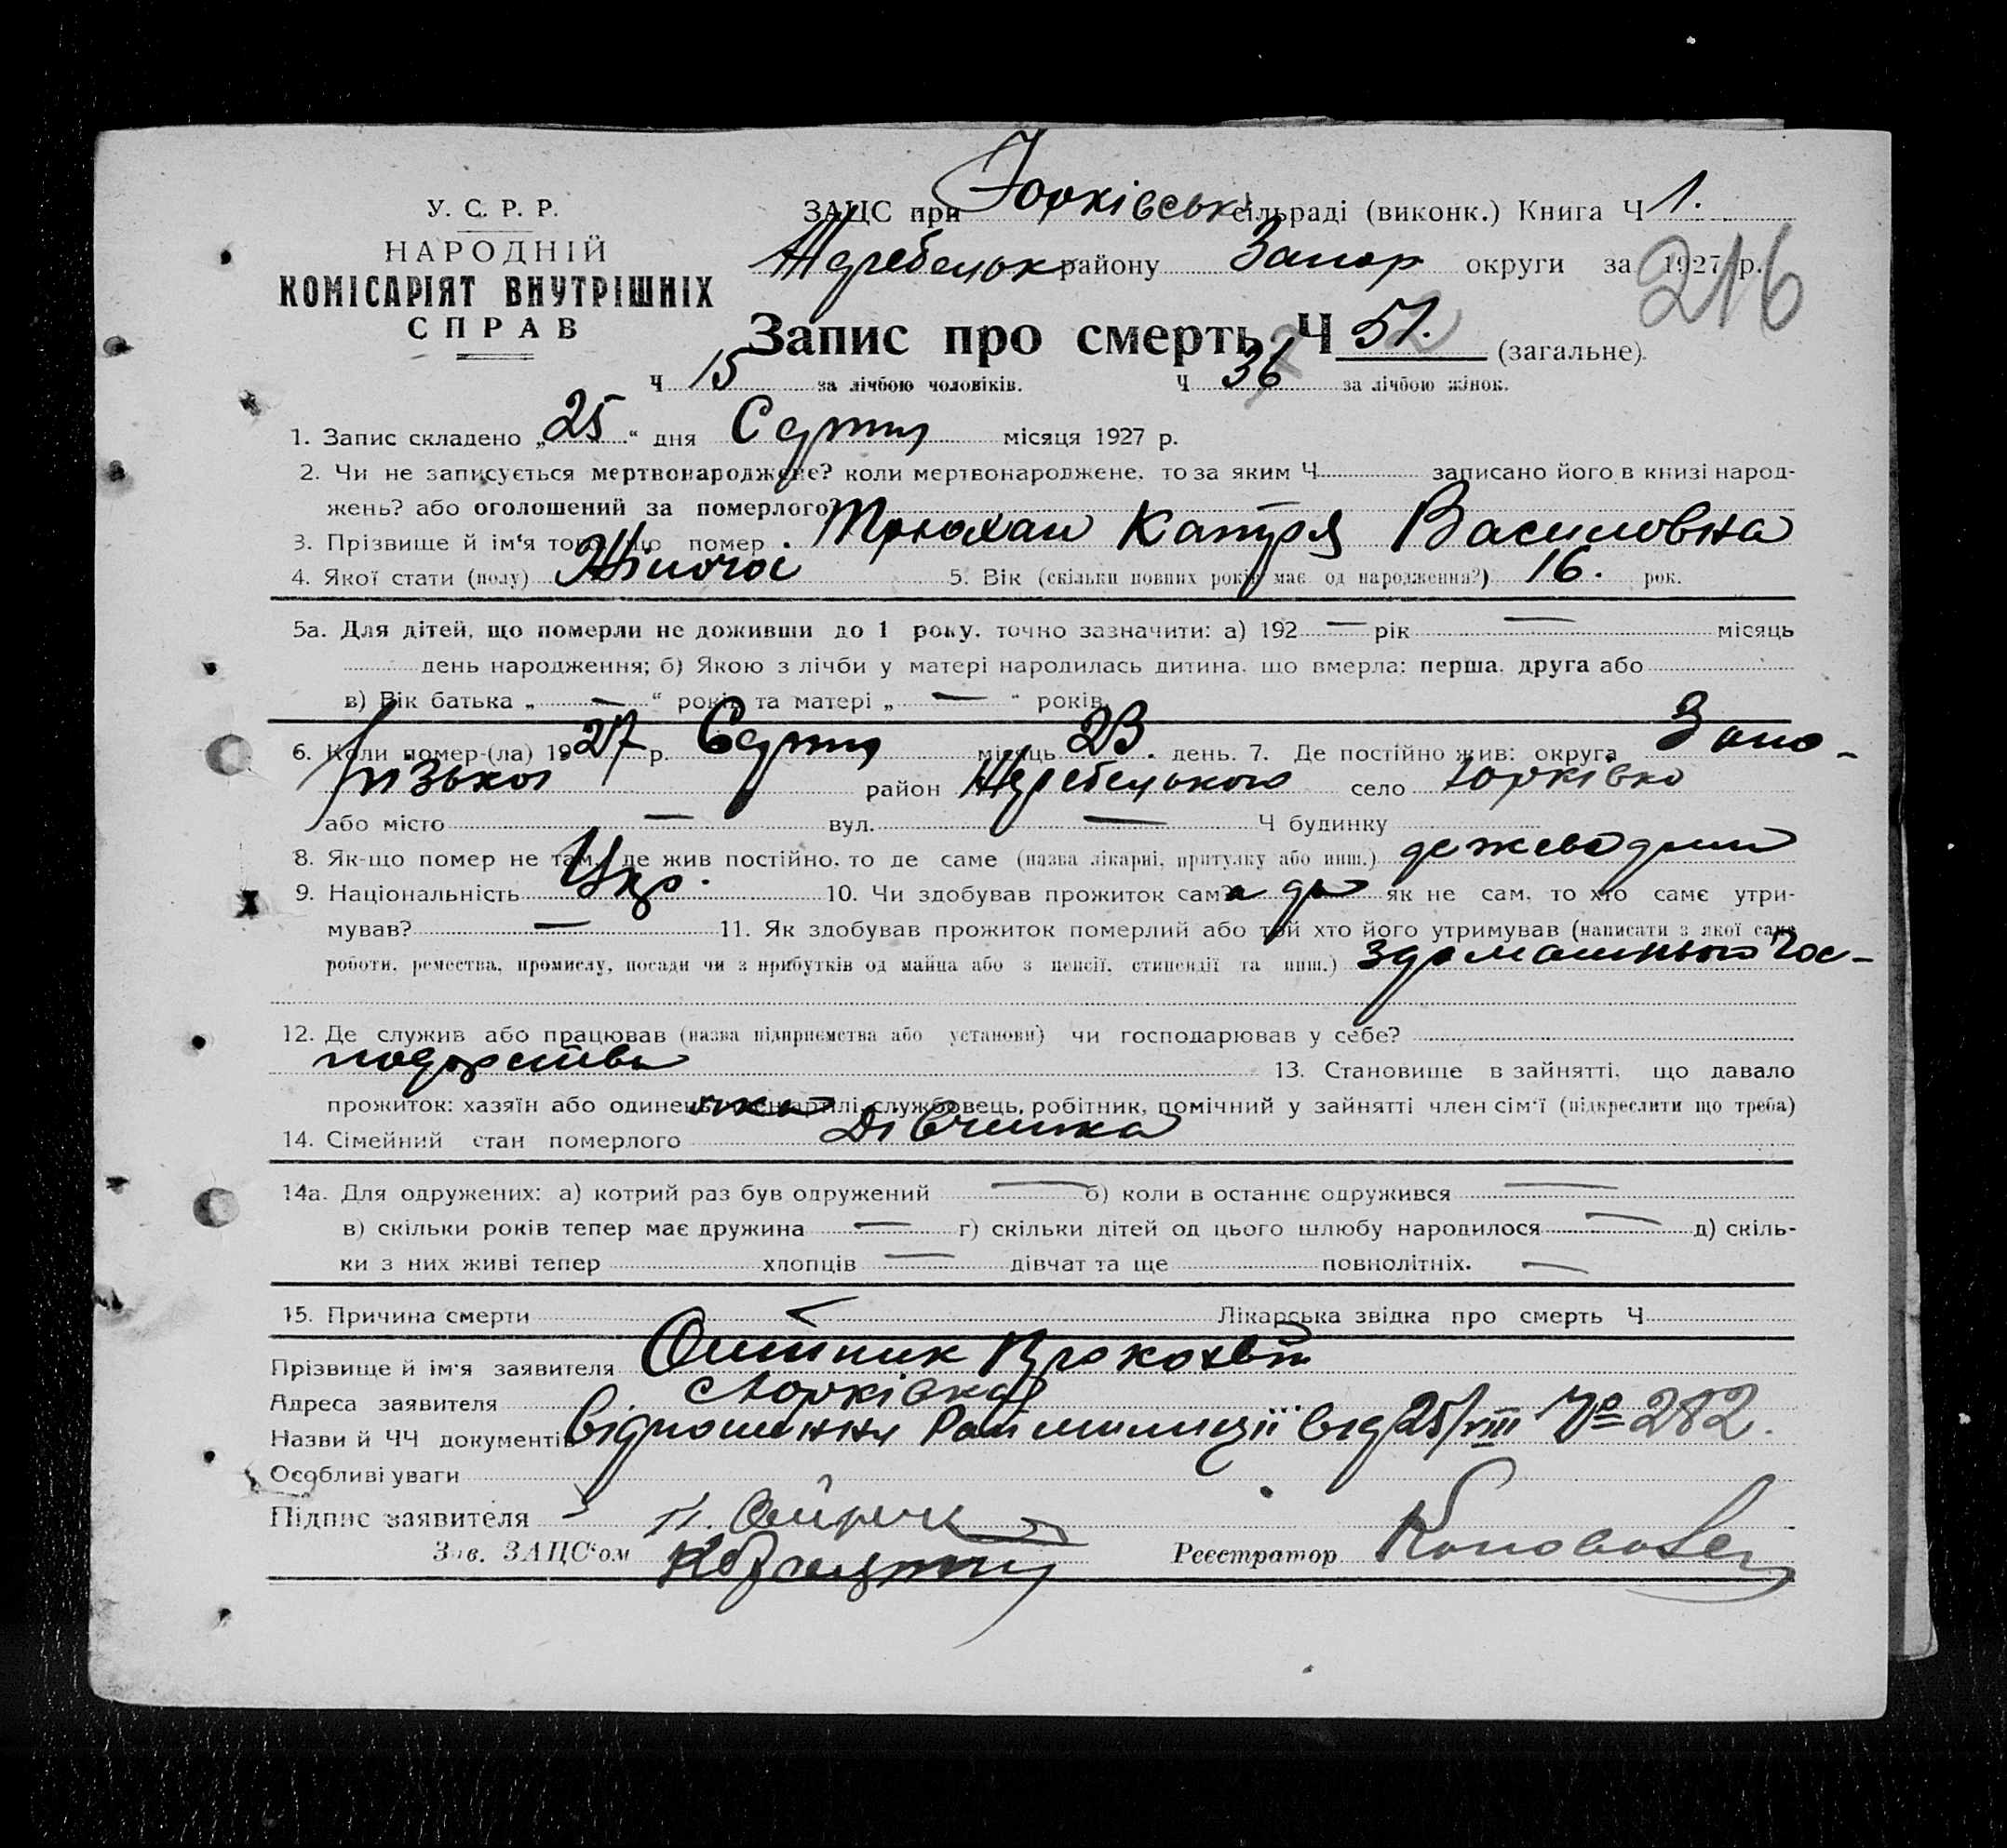 У. С. Р. Р.
НАРОДНІЙ
КОМІСАРІЯТ ВНУТРІШНІХ
СПРАВ
ЗАЦС при Юрківські сільраді (виконк.) Книга Ч 1.
Жеребецьк району Запор округи за 1927 р.
216
Запис про смерть Ч 51. (загальне).
Ч 15 за лічбою чоловіків. Ч 36 за лічбою жінок.
1. Запис складено „25“ дня Серпня місяця 1927 р.
2. Чи не записується мертвонароджене? коли мертвонароджене, то за яким Ч записано його в книзі народ-
жень? або оголошений за померлого?
3. Прізвище й ім'я того, що помер Трюхан Катря Василовна
4. Якої стати (полу) Жіночої 5. Вік (скільки повних років має од народження?) 16. рок.
5а. Для дітей, що померли не доживши до 1 року, точно зазначити: а) 192 — рік — місяць
день народження; б) Якою з лічби у матері народилась дитина, що вмерла: перша, друга або
в) Вік батька „ — “ років та матері „ — “ років.
6. Коли помер-(ла) 1927 р. Серпня місяць 23. день. 7. Де постійно жив: округа Запо-
різької район Жеребецького село Юрківка
або місто — вул. — Ч будинку
8. Як-що помер не там, де жив постійно, то де саме (назва лікарні, притулку або инш.)
9. Національність Укр. 10. Чи здобував прожиток сам? як не сам, то хто саме утри-
мував? — 11. Як здобував прожиток померлий або той хто його утримував (написати з якої саме
роботи, ремества, промислу, посади чи з прибутків од майна або з пенсії, стипендії та инш.) з домашнього гос-
12. Де служив або працював (назва підприємства або установи) чи господарював у себе?
подарства 13. Становище в зайнятті, що давало
прожиток: хазяїн або одинець, член артілі, службовець, робітник, помічний у зайнятті член сім'ї (підкреслити що треба)
14. Сімейний стан померлого Дівчинка
14а. Для одружених: а) котрий раз був одружений — б) коли в останнє одружився —
в) скільки років тепер має дружина — г) скільки дітей од цього шлюбу народилося — д) скіль-
ки з них живі тепер хлопців — дівчат та ще повнолітніх. —
15. Причина смерти Лікарська звідка про смерть Ч
Прізвище й ім'я заявителя Прокохвій
Адреса заявителя с Юрківка
Назви й ЧЧ документів Відношення Райміліції від 25/VIII № 282.
Особливі уваги
Підпис заявителя
Зав. ЗАЦС'ом Реєстратор